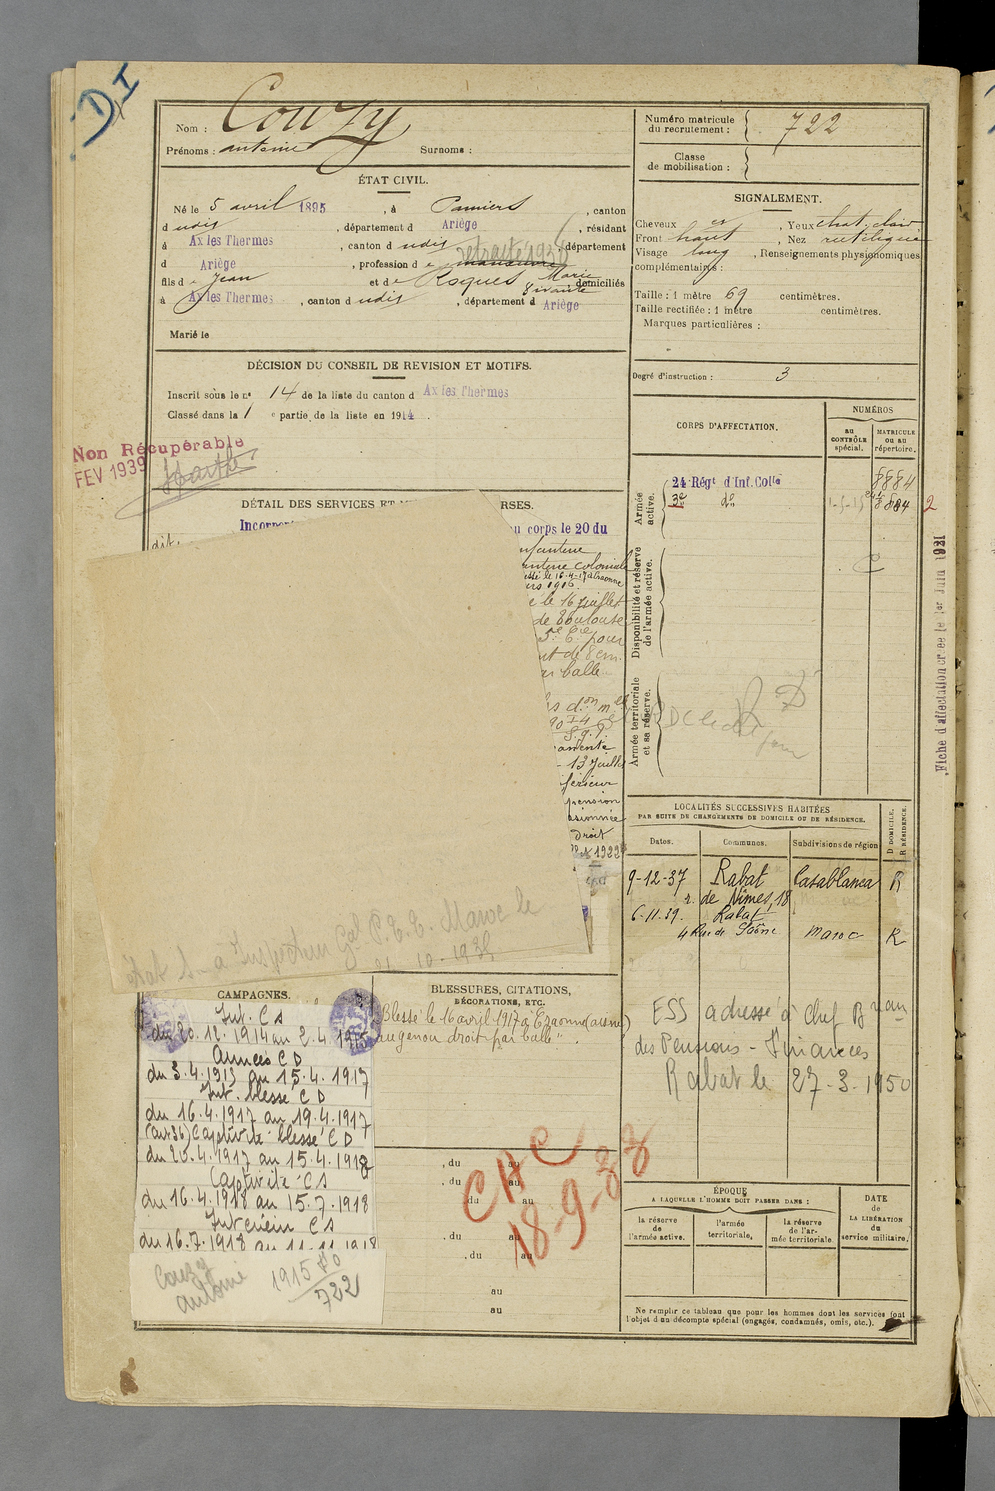 DI
Nom : Couzy
Prénoms : antoine Surnoms :
Numéro matricule du recrutement : 722
Classe de mobilisation :
ÉTAT CIVIL.
Né le 5 avril 1895, à Pamiers, canton
d udis, département d Ariège, résidant
à Ax les Thermes, canton d udis, département
d Ariège, profession d e manœuvre retraité 1938
fils d e Jean et de Roques Marie domiciliés
à Ax les Thermes, canton d udis, département d Ariège
Marié le
SIGNALEMENT.
Cheveux, Yeux chat. clair
Front haut, Nez rectiligne
Visage long, Renseignements physionomiques
complémentaires :
Taille : 1 mètre 69 centimètres.
Taille rectifiée : 1 mètre centimètres.
Marques particulières :
Degré d'instruction : 3
DÉCISION DU CONSEIL DE REVISION ET MOTIFS.
Inscrit sous le n° 14 de la liste du canton d Ax les Thermes
Classé dans la 1e partie de la liste en 1914.
Non Récupérable
FEV 1939
DÉTAIL DES SERVICES ET
RSES.
Incorpor
au corps le 20 du
dit.
nfanterie
anterie coloniale
ssé le 16-4-17 à Craonne
ers 1916.
e le 16 juillet
de Toulouse
5e Cie pour
nt de 8 cm.
ar balle
amente
- 13 Juillet
férieur
pension
asionnée
droit
1922
CORPS D'AFFECTATION.
NUMÉROS
au CONTRÔLE spécial.
MATRICULE ou au répertoire.
Armée active.
24 Régt d'Inf. Colle 8884
3e do 8884
2
Disponibilité et réserve de l'armée active.
Armée territoriale et sa réserve.
Fiche d'affectation créée le 1er Juin 1921
LOCALITÉS SUCCESSIVES HABITÉES
PAR SUITE DE CHANGEMENTS DE DOMICILE OU DE RÉSIDENCE.
Dates. Communes. Subdivisions de région D DOMICILE, R RÉSIDENCE.
9-12-37 Rabat Casablanca R
r. de Nîmes, 18
6-11-39. Rabat
4 Rue de Saône Maroc R
ESS adressé à Chef Bureau
des Pensions - Finances
Rabat le 27-3-1950
état S - à Inspecteur Gal P.T.T. Maroc le
21-10-1938
CAMPAGNES.
Int. CS
du 20.12.1914 au 2.4.1915
Armées CD
du 3.4.1915 au 15.4.1917
Int. blessé CD
du 16.4.1917 au 19.4.1917
(art 36) Captivité blessé CD
du 20.4.1917 au 15.4.1918
Captivité CS
du 16.4.1918 au 15.7.1918
Intérieur CS
du 16.7.1918 au 11.11.1918
Couzy
antoine
1915
722
BLESSURES, CITATIONS,
DÉCORATIONS, ETC.
Blessé le 16 avril 1917 à Craonne (aisne)
au genou droit par balle".
, du au
, du au
du au
, du au
, du au
au
au
CAC
18-9-38
ÉPOQUE
A LAQUELLE L'HOMME DOIT PASSER DANS :
la réserve de l'armée active.
l'armée territoriale,
la réserve de l'armée territoriale
DATE de LA LIBÉRATION du service militaire.
Ne remplir ce tableau que pour les hommes dont les services font
l'objet d'un décompte spécial (engagés, condamnés, omis, etc.).